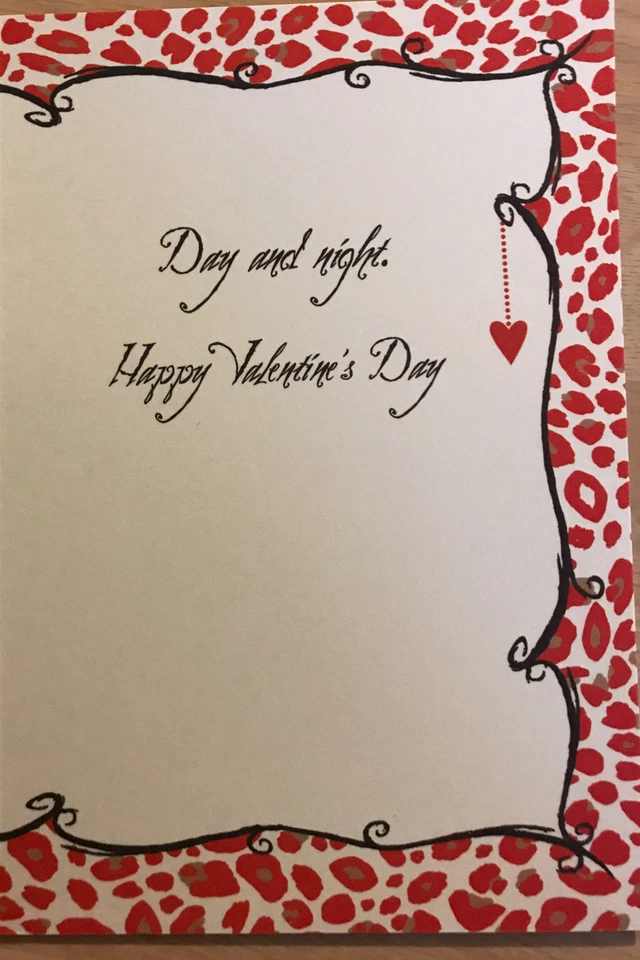 Day and night.
Happy Valentine's Day